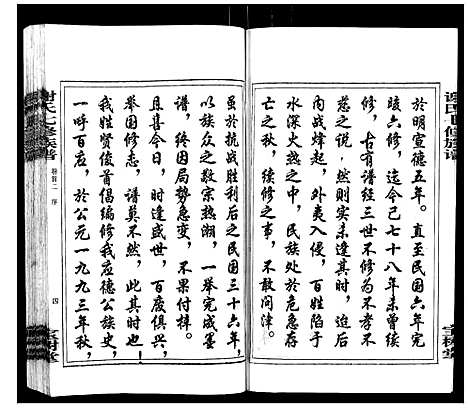 於明宣德五年。直至民国六年完
竣六修，迄今已七十八年未曾续
修，古有谱经三世不修为不孝不
慈之说，然则实未逢其时，迨后
内战烽起，外夷入侵，百姓陷于
水深火热之中，民族处於危急存
亡之秋，续修之事，不敢问津。
虽於抗战胜利后之民国三十六年，
以族众之敦宗热潮，一举完成墨
谱，终因局势急变，不果付梓。
且喜今日，时逢盛世，百废俱兴，
举国修志，谱莫不然，此其时也！
我姓贤俊首倡编修我应德公族史，
一呼百应，於公元一九九三年秋，
谢氏七修族谱
宝树堂
谢氏七修族谱
卷首二 序
四
宝树堂